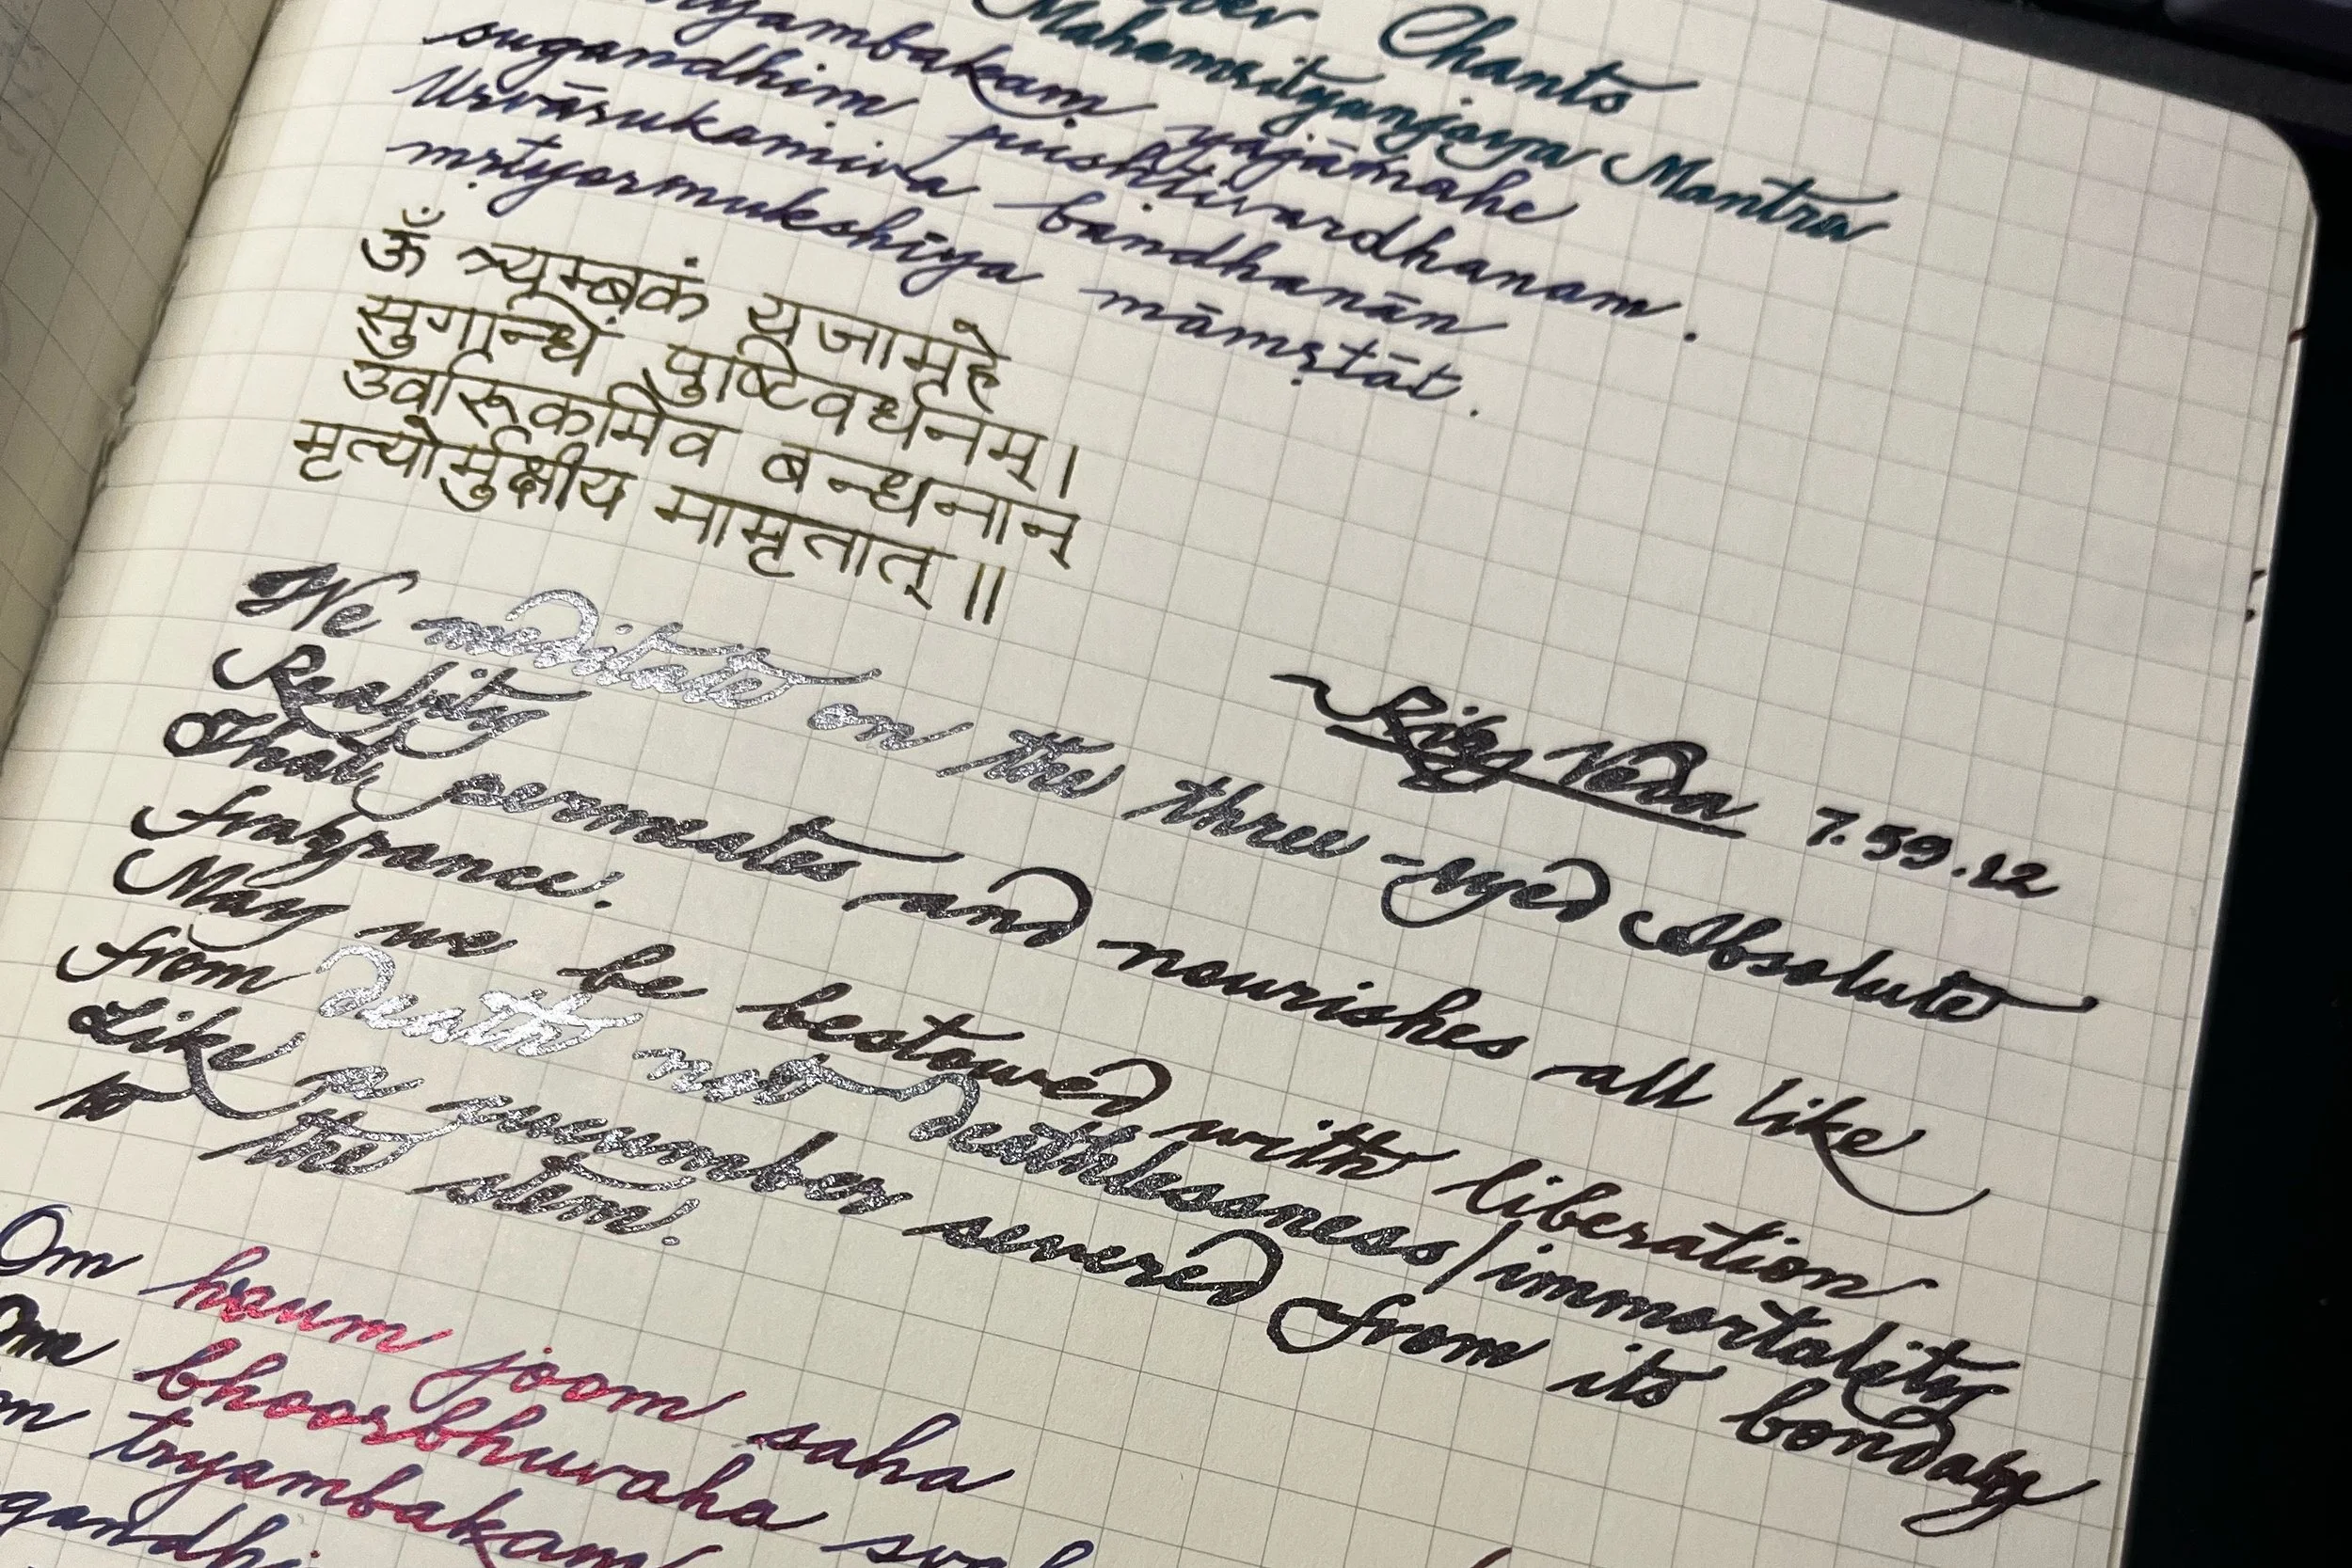 Chants
Mahamrityunjaya Mantra
yajāmahe
sugandhim pushṭivardhanam.
Urvārukamiva bandhanān
mṛtyormukshīya māmṛtāt.
ॐ त्र्यम्बकं यजामहे
सुगन्धिं पुष्टिवर्धनम्।
उर्वारूकमिव बन्धनान्
मृत्योर्मुक्षीय मामृतात्॥
Rig Veda 7.59.12
We meditate on the three-eyed Absolute
Reality
That permeates and nourishes all like
fragrance.
May we be bestowed with liberation
from death not deathlessness/immortality
Like a cucumber severed from its bondage
to the stem.
Om hraum joom saha
Om bhoorbhuvaha
tryambakam